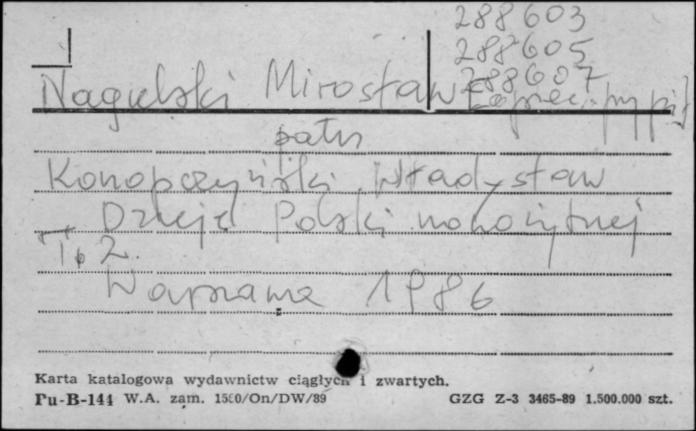 288603
288605
288607
Nagielski Mirosław [oprac. przypis]
patrz
Konopczyński Władysław
Dzieje Polski nowożytnej
T. 2.
Warszawa 1986
Karta katalogowa wydawnictw ciągłych i zwartych.
Pu-B-144 W.A. zam. 1500/On/DW/89 GZG Z-3 3465-89 1.500.000 szt.